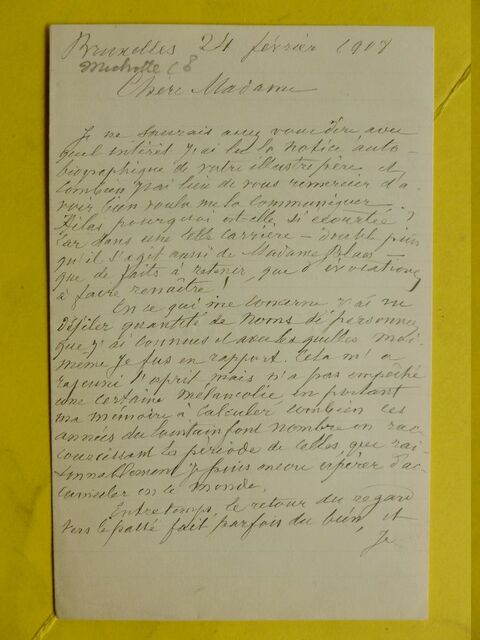 Bruxelles 24 février 1908
Michotte (8
Chère Madame
Je ne saurais assez vous dire avec
quel intérêt j'ai lu la notice auto-
biographique de votre illustre père et
combien j'ai lieu de vous remercier d'a-
voir bien voulu me la communiquer.
Hélas pourquoi est-elle si écourtée ?
Car dans une telle carrière – double puis
qu'il s'agit aussi de Madame –
que de faits à retenir, que d'évocations
à faire renaître !
En ce qui me concerne j'ai vu
défiler quantité de noms de personnes
que j'ai connues et avec lesquelles moi-
même je fus en rapport. Cela m'a
rajeuni l'esprit mais n'a pas empêché
une certaine mélancolie, en portant
ma mémoire à calculer combien ces
années du lointain font nombre en rac-
courcissant la période de celles que rai-
sonnablement je puis encore espérer d'ac-
cumuler en ce monde.
Entretemps, le retour du regard
vers le passé fait parfois du bien, et
Je